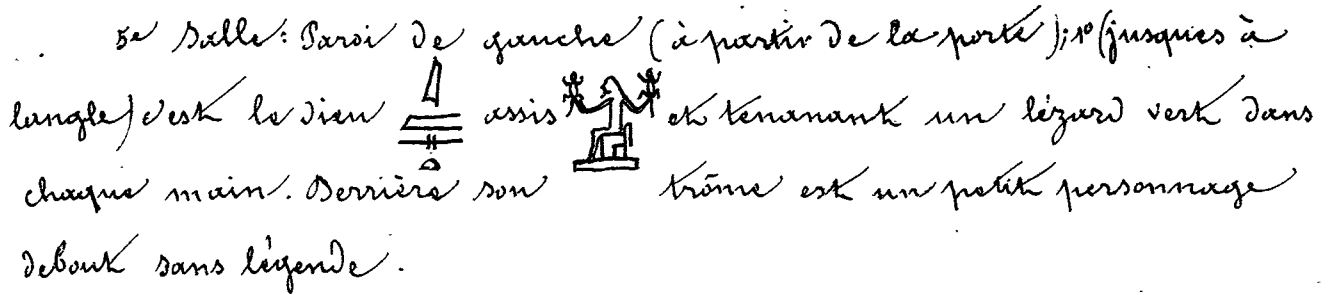 5e Salle: Paroi de gauche (à partir de la porte); 1º (jusques à
langle) c'est le dieu assis et tenanant un lézard vert dans
chaque main. Derrière son trôme est un petit personnage
debout sans légende.